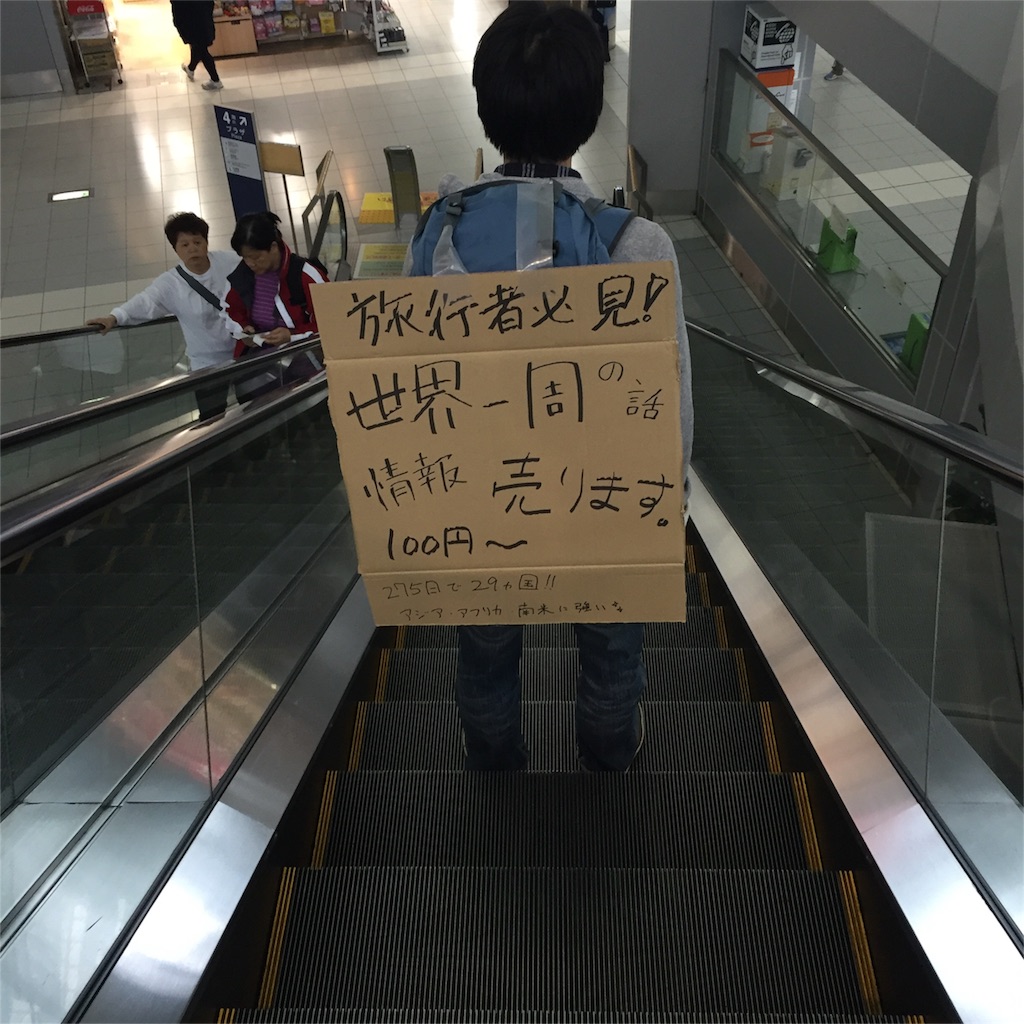 旅行者必見!
世界一周の話
情報 売ります。
100円〜
275日で29ヵ国!!
アジア・アフリカ 南米に強いよ
4
プラザ